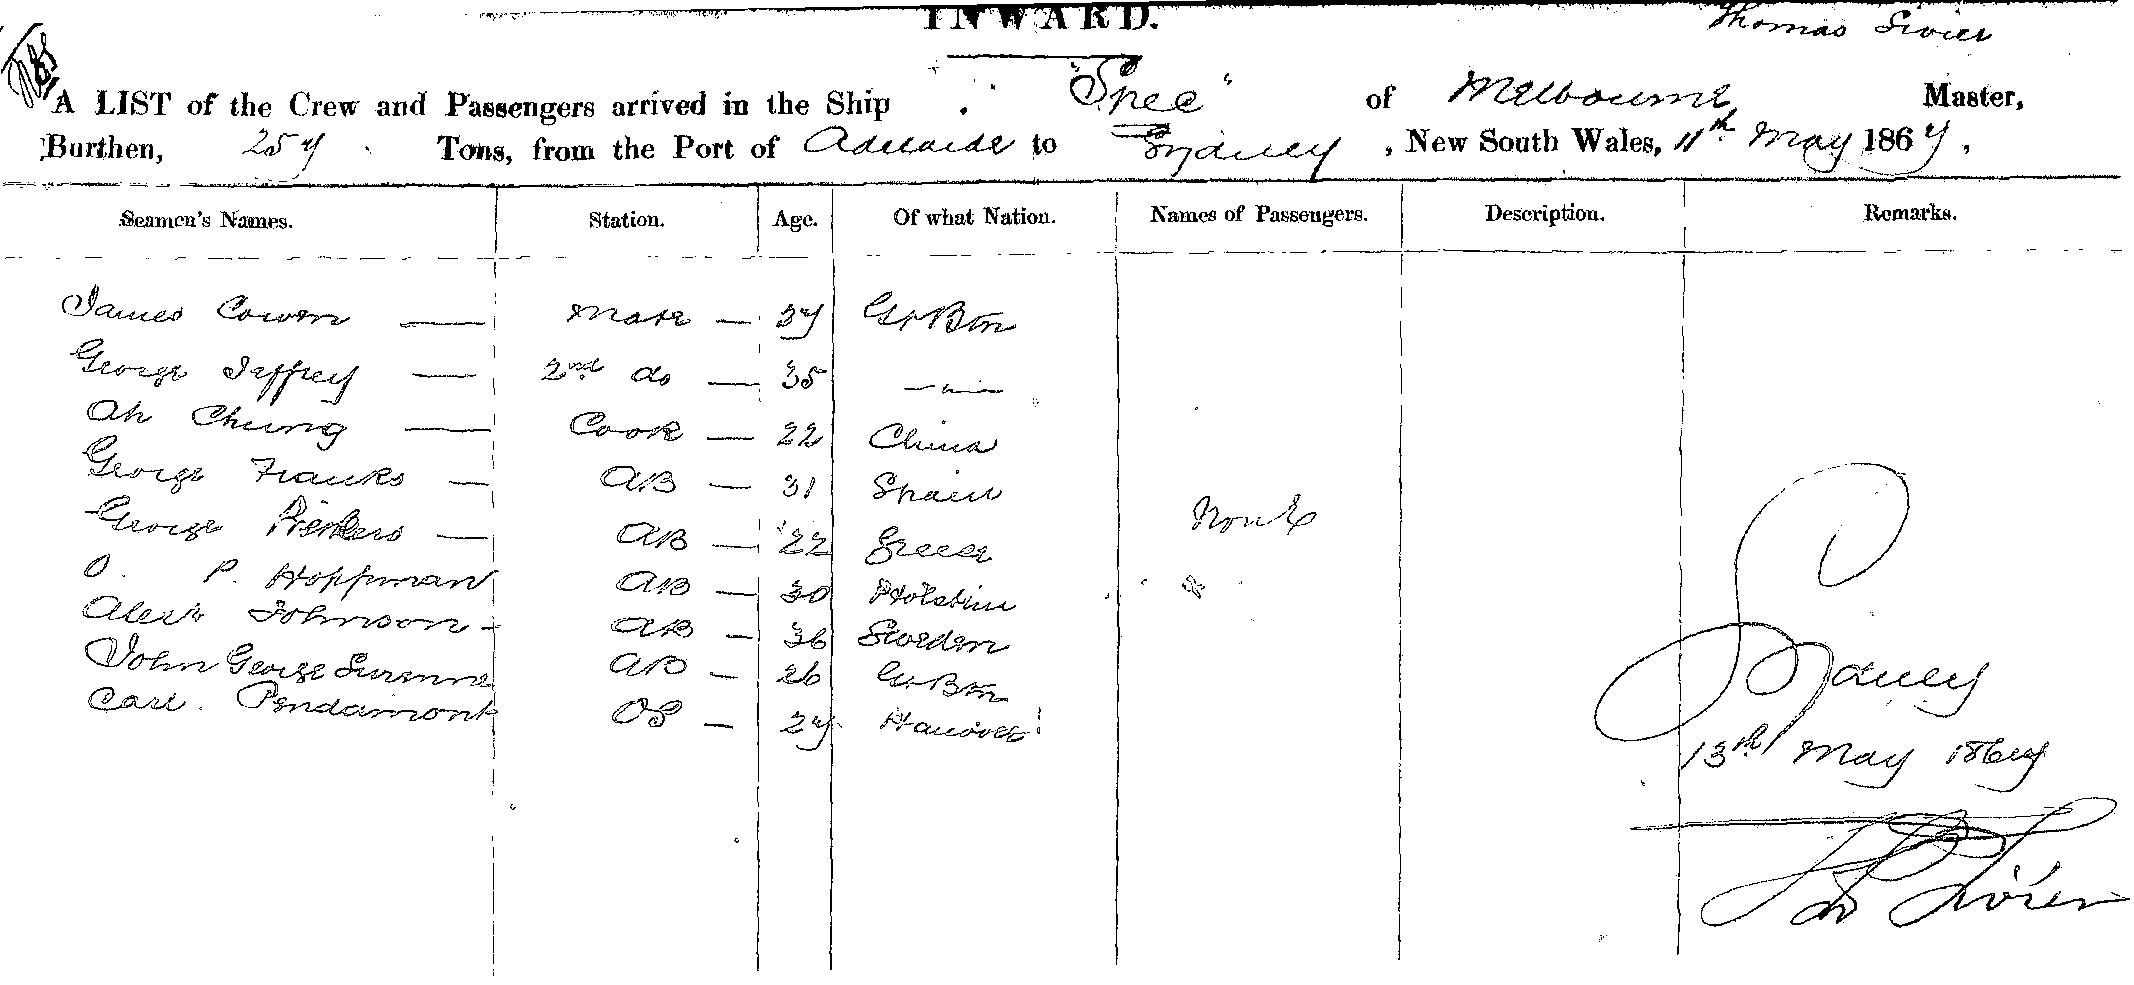 INWARD.
Thomas Sivier
A LIST of the Crew and Passengers arrived in the Ship "Spec" of Melbourne, Master,
Burthen, 257 Tons, from the Port of Adelaide to Sydney, New South Wales, 11th May 1867,
Seamen's Names. Station. Age. Of what Nation. Names of Passengers. Description. Remarks.
James Cowen — Mate — 37 Gt Btn
George Jeffrey — 2nd do — 35 — " —
Ah Chung — Cook — 22 China
George Franks — AB — 31 Spain
George — AB — 22 Greece None
O. P. Hoffman AB — 30 Holstine
Alexr Johnson - AB — 36 Sweden
John George AB — 26 Gt Btn
Carl. Pendamont OS — 27 Hanover
Sydney
13th May 1867
Thos Sivier